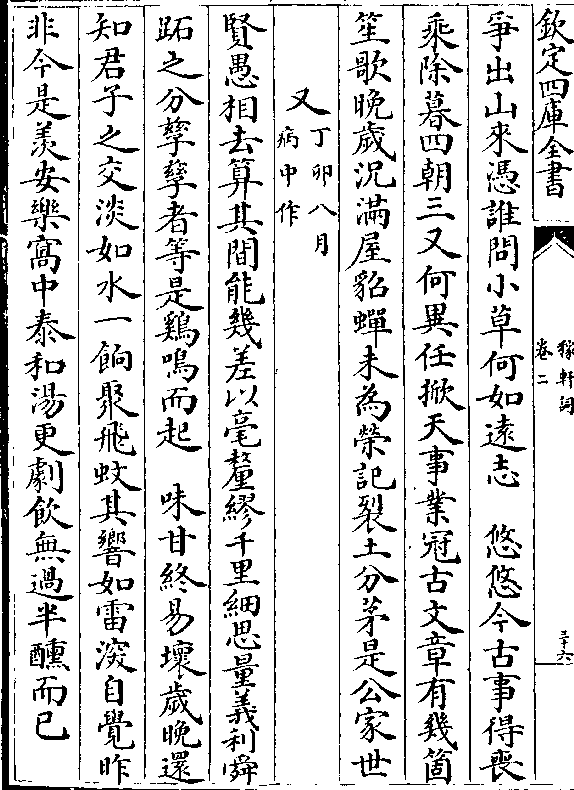 欽定四庫全書
稼軒詞
卷二
三十六
爭出山來憑誰問小草何如遠志　悠悠今古事得喪
乘除暮四朝三又何異任掀天事業冠古文章有幾箇
笙歌晚歲況滿屋貂蟬未為榮記裂土分茅是公家世
又丁卯八月
病中作
賢愚相去算其間能幾差以毫釐繆千里細思量義利舜
跖之分孳孳者等是鷄鳴而起　味甘終易壞歲晚還
知君子之交淡如水一餉聚飛蚊其響如雷深自覺昨
非今是羨安樂窩中泰和湯更劇飲無過半醺而已